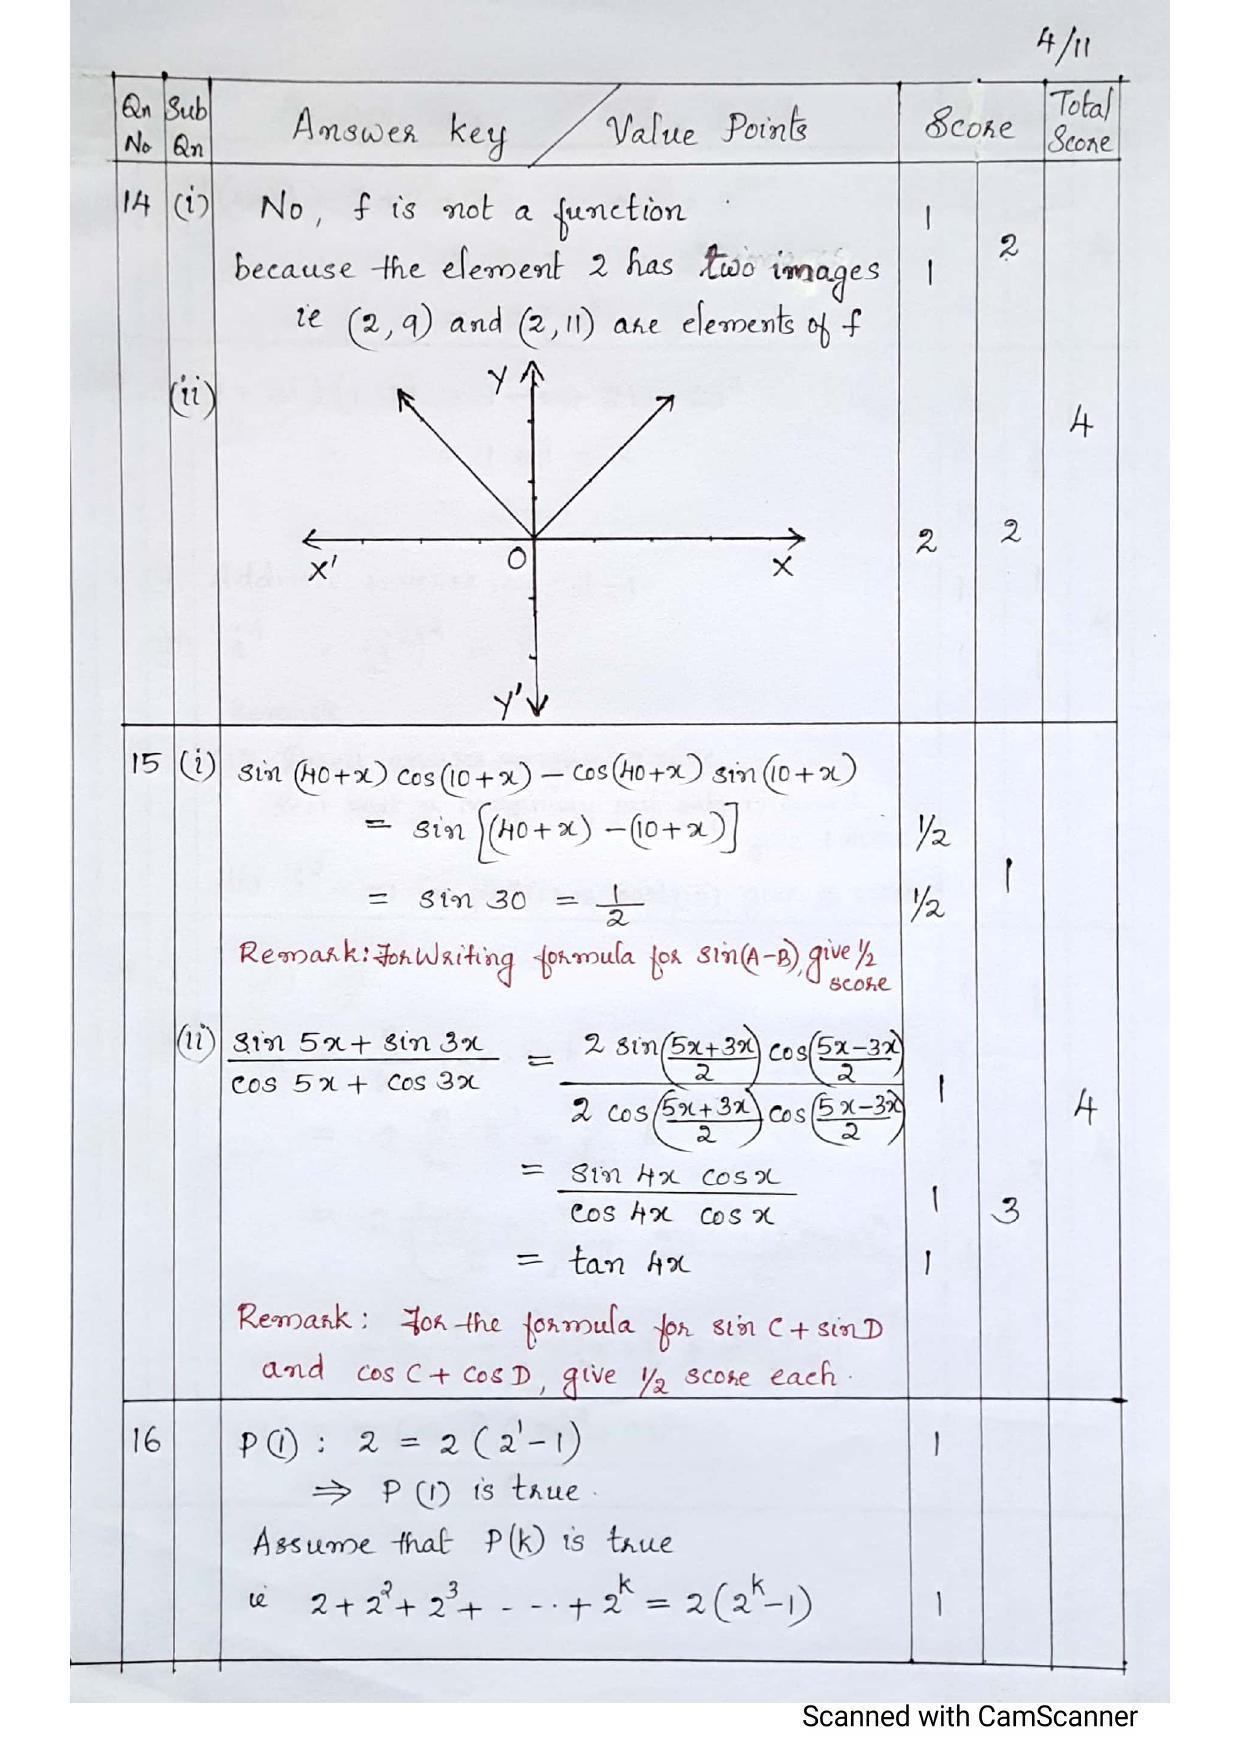 4/11
Qn No Sub Qn Answer key / Value Points Score Total Score
14 (i) No, f is not a function 1
because the element 2 has two images 1 2
ie (2, 9) and (2, 11) are elements of f
(ii) Y 4
X' O X 2 2
Y'
15 (i) sin (40+x) cos(10+x) – cos(40+x) sin(10+x)
= sin [(40+x) – (10+x)] 1/2
= sin 30 = 1/2 1/2 1
Remark: For writing formula for sin(A-B), give 1/2 score
(ii) sin 5x + sin 3x / cos 5x + cos 3x = 2 sin(5x+3x/2) cos(5x-3x/2) / 2 cos(5x+3x/2) cos(5x-3x/2) 1 4
= sin 4x cos x / cos 4x cos x 1 3
= tan 4x 1
Remark: For the formula for sin C + sin D
and cos C + cos D, give 1/2 score each.
16 P(1) : 2 = 2 (2¹ – 1) 1
⇒ P(1) is true.
Assume that P(k) is true
ie 2 + 2² + 2³ + - - .. + 2^k = 2(2^k – 1) 1
Scanned with CamScanner